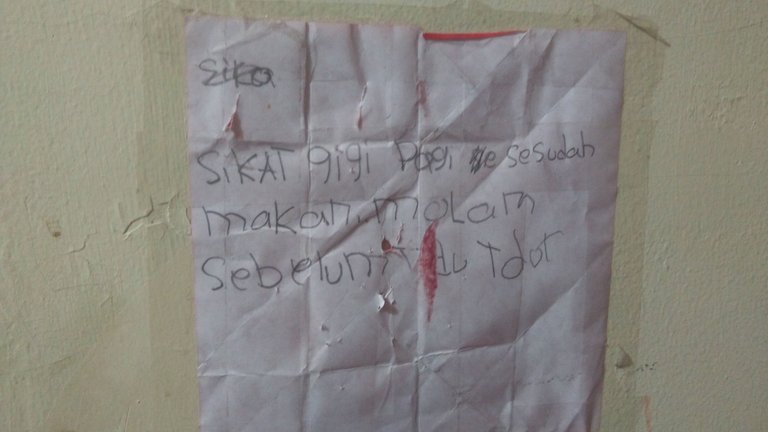 sika
SiKAT gigi Pagi se sesudah
makan. malam
sebelum Tdur